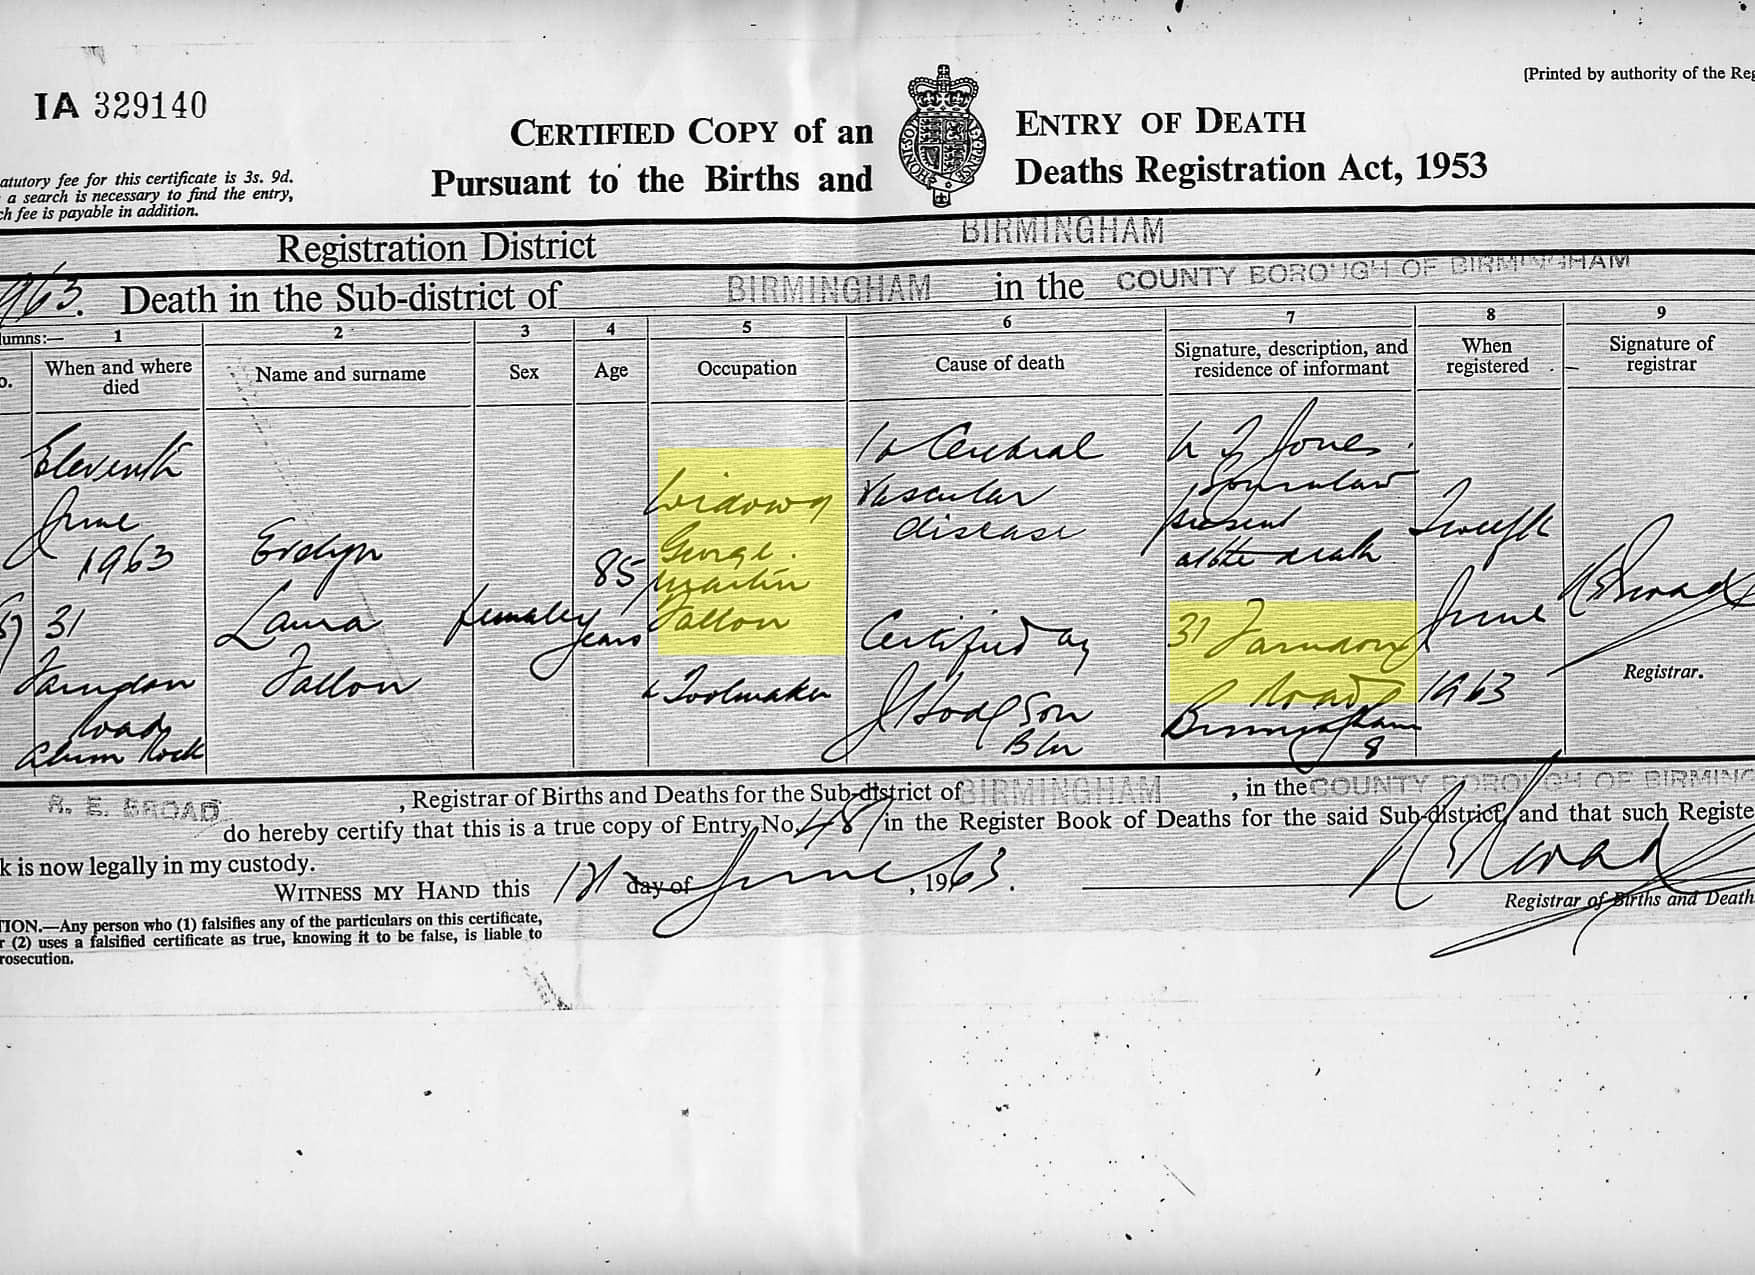 [Printed by authority of the Reg
IA 329140
CERTIFIED COPY of an ENTRY OF DEATH
Pursuant to the Births and Deaths Registration Act, 1953
HONI SOIT
atutory fee for this certificate is 3s. 9d.
a search is necessary to find the entry,
ch fee is payable in addition.
Registration District BIRMINGHAM
963. Death in the Sub-district of BIRMINGHAM in the COUNTY BOROUGH OF BIRMINGHAM
lumns:— 1 2 3 4 5 6 7 8 9
o.
When and where
died
Name and surname
Sex
Age
Occupation
Cause of death
Signature, description, and
residence of informant
When
registered
Signature of
registrar
Eleventh
June
1963
31
Farndon
Road
Alum Rock
Evelyn
Laura
Fallon
female
85
years
Widow of
George
Martin
Fallon
a Toolmaker
1a Cerebral
Vascular
disease
Certified by
J Hodgson
Jones
Son in law
present
at the death
31 Farndon
Road
Birmingham
8
Twelfth
June
1963
R E Broad
Registrar.
R. E. BROAD , Registrar of Births and Deaths for the Sub-district of BIRMINGHAM , in the COUNTY BOROUGH OF BIRMING
do hereby certify that this is a true copy of Entry No. 487 in the Register Book of Deaths for the said Sub-district, and that such Registe
k is now legally in my custody.
WITNESS MY HAND this 12 day of June , 1963.
R E Broad
Registrar of Births and Death
TION.—Any person who (1) falsifies any of the particulars on this certificate,
r (2) uses a falsified certificate as true, knowing it to be false, is liable to
rosecution.